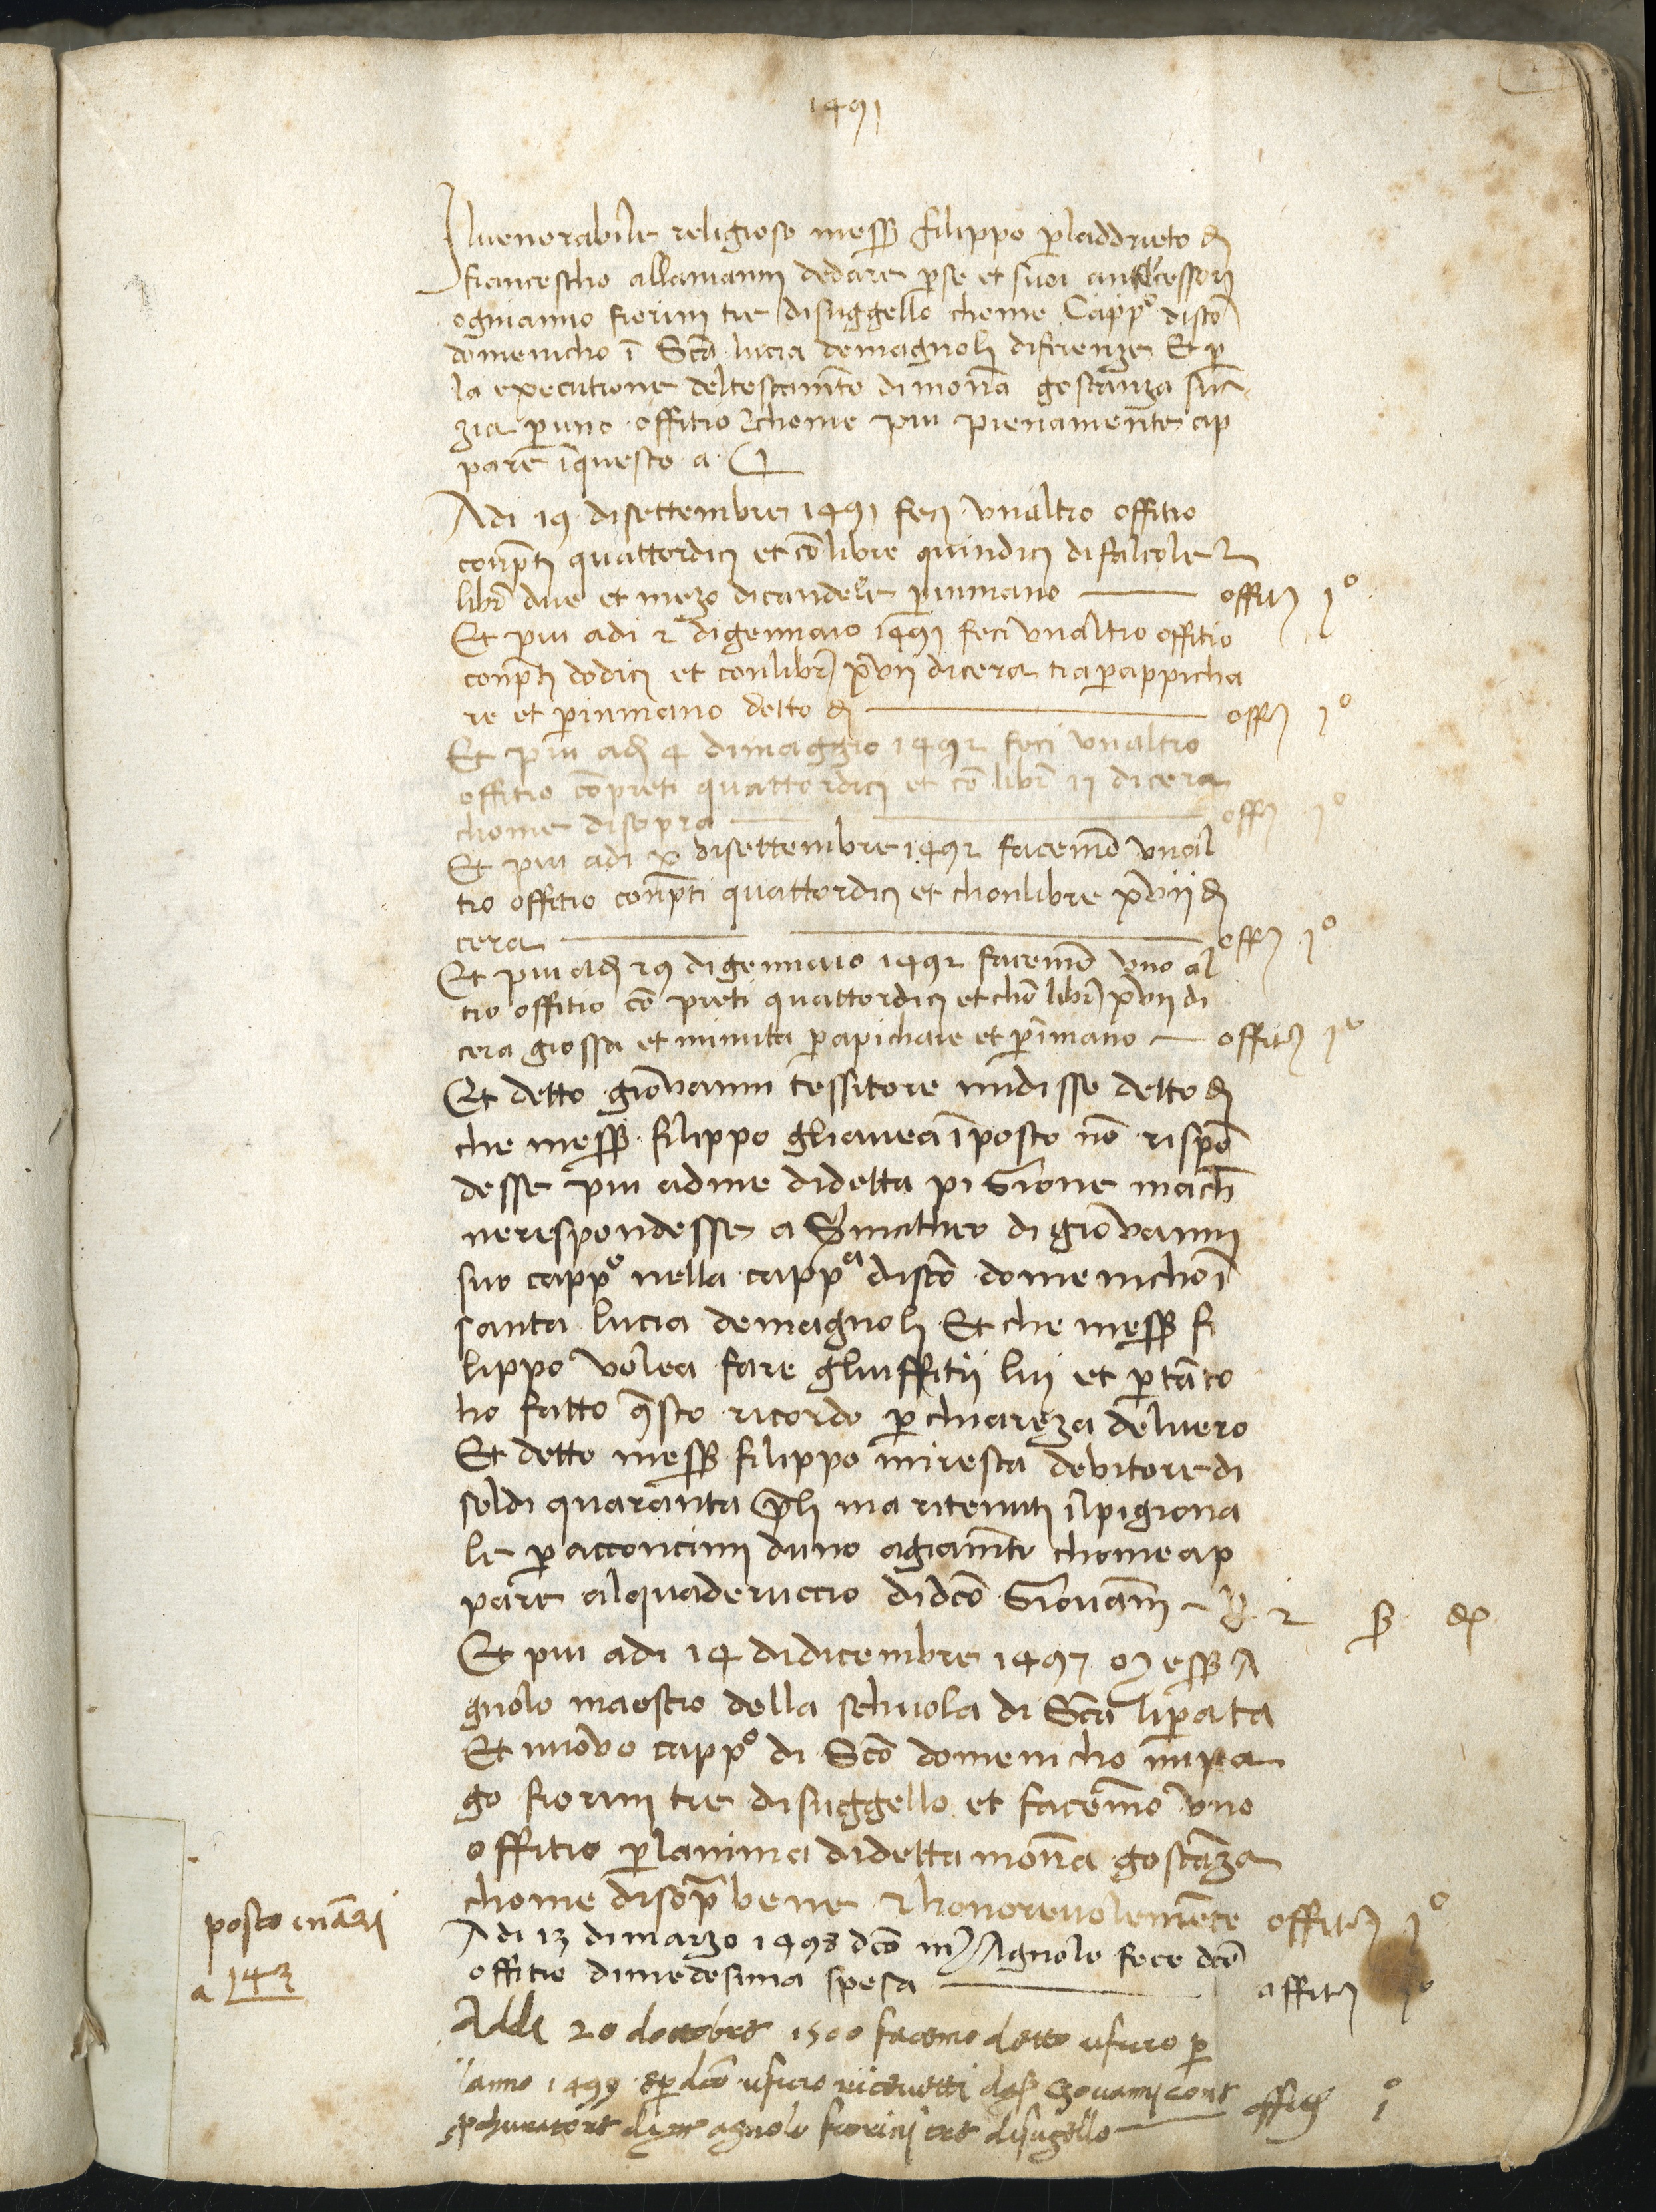 1491
Iluenerabile religioso mess filippo pladdrieto di
francescho allamanni dedare pse et suoi antecessori
ognianno fiorini tre disuggello chome Capp° discō
domenicho ī Scā lucia demagnoli difirenze Et p
la executione deltestamēto dimonna gostanza
p uno offitio chome piu pienamente ap
pare īquesto a
Adi 19 disettembre 1491 feci unaltro offitio
conpti quattordici et cō libre quindici difalcole
libr due et mezo dicandele pinmano offitio 1°
Et piu adi 2 digennaio 1491 feci unaltro offitio
conpti dodici et conlibr xvii dicera tra p appicha
re et pinmano detto di offitio 1°
Et piu adi 4 dimaggio 1492 feci unaltro
offitio cō preti quattordici et cō libr 17 dicera
chome disopra offitio 1°
Et piu adi x disettembre 1492 facemō unal
tro offitio conpti quattordici et chonlibre xvii di
cera offitio 1°
Et piu adi 29 digennaio 1492 facemō uno al
tro offitio cō preti quattordici et chō libr xvii di
cera grossa et minuta p apichare et p īmano offitio 1°
Et detto giovanni tessitore midisse detto di
che mess filippo gliauea īposto nō rispō
desse piu adme didetta pigione mach
nerespondesse a S matheo di giovanni
suo capp° nella cappa discō domenicho ī
santa lucia demagnoli Et che mess fi
lippo volea fare gliuffitii lui et ptāto
ho fatto qsto ricordo p chiareza delvero
Et detto mess filippo miresta debitore di
soldi quaranta qli ma ritenuti īlpigiona
le p acconcimi duno agiamēto chome ap
pare alquadernuccio didcō Giovāni 2
Et piu adi 14 didicembre 1497 Mess A
gnolo maestro della schuola di Scā liparata
Et nuovo capp° di Scō domenicho mipa
go fiorini tre disuggello et facemmo uno
offitio planima didetta monna gostāza
chome disopra bene et honorevolemēte offitio 1°
Adi 13 dimarzo 1498 dcō m Agnolo fece dcō
offitio dimedesima spesa offitio 1°
Addi 20 doctobre 1500 facemo detto ufitio p
lanno 1499 e p dcō ufitio ricevetti Giovanni
pchuratore di m agnolo fiorini tre disugello offitio 1°
posto ināzi
a 143